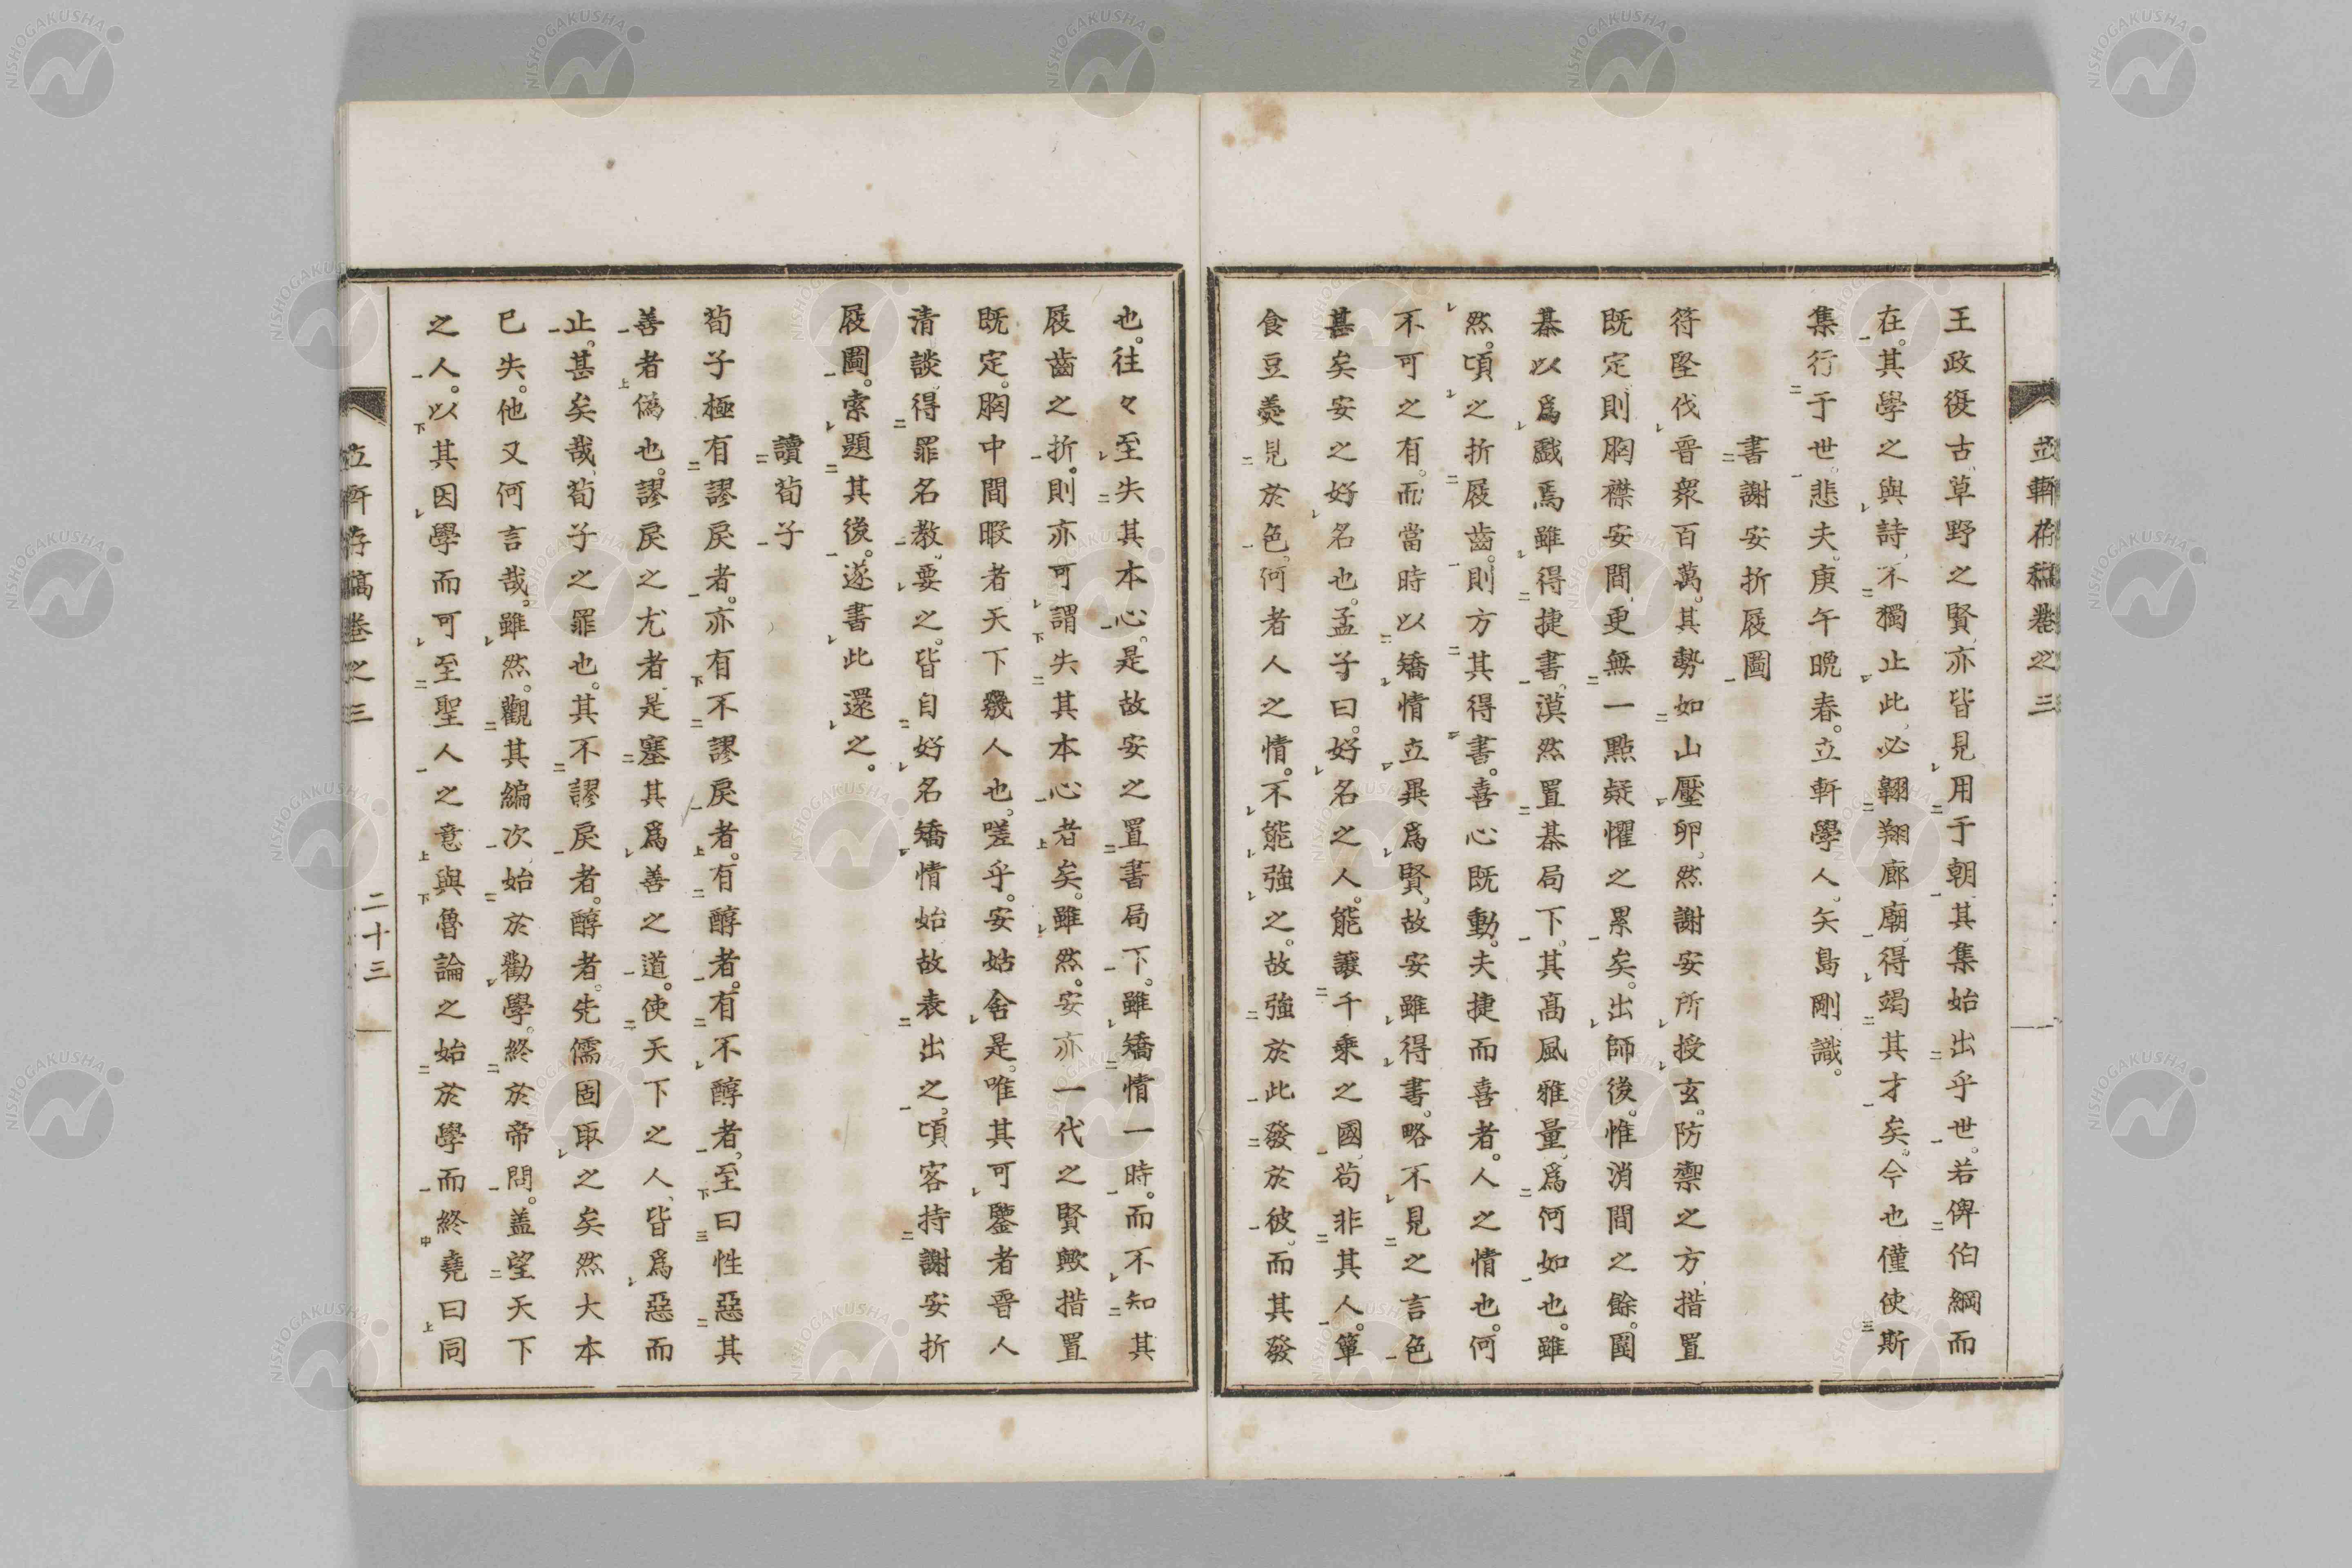 立軒存稿卷之三
王政復古、草野之賢、亦皆見用于朝、其集始出乎世。若俾伯綱而
在。其學之與詩、不獨止此、必翱翔廊廟、得竭其才矣。今也僅使斯
集行于世。悲夫。庚午晩春。立軒學人、矢島剛識。
書謝安折屐圖
符堅伐晉、衆百萬。其勢如山壓卵、然謝安所授玄。防禦之方、措置
既定、則胸襟安間、更無一點疑懼之累矣。出師後。惟消間之餘。圍
棊以爲戲焉、雖得捷書、漠然置棊局下。其高風雅量、爲何如也。雖
然。頃之折屐齒。則方其得書。喜心既動。夫捷而喜者。人之情也。何
不可之有。而當時以矯情立異爲賢。故安雖得書。略不見之言色
甚矣安之好名也。孟子曰。好名之人。能讓千乘之國、苟非其人。簞
食豆羹見於色。何者人之情。不能強之。故強於此發於彼。而其發
也。往々至失其本心。是故安之置書局下。雖矯情一時。而不知其
屐齒之折。則亦可謂失其本心者矣。雖然。安亦一代之賢歟措置
既定。胸中間暇者、天下幾人也。嗟乎。安姑舍是。唯其可鑒者晉人
清談、得罪名教。要之。皆自好名矯情始。故表出之。頃客持謝安折
屐圖。索題其後。遂書此還之。
讀荀子
荀子極有謬戾者。亦有不謬戾者。有醇者。有不醇者。至曰性惡其
善者僞也。謬戾之尤者、是塞其爲善之道。使天下之人、皆爲惡而
止。甚矣哉、荀子之罪也。其不謬戾者。醇者。先儒固取之矣然大本
已失。他又何言哉。雖然。觀其編次、始於勸學。終於帝問。盖望天下
之人。以其因學而可至聖人之意與魯論之始於學而終堯曰同
立軒存稿卷之三
二十三